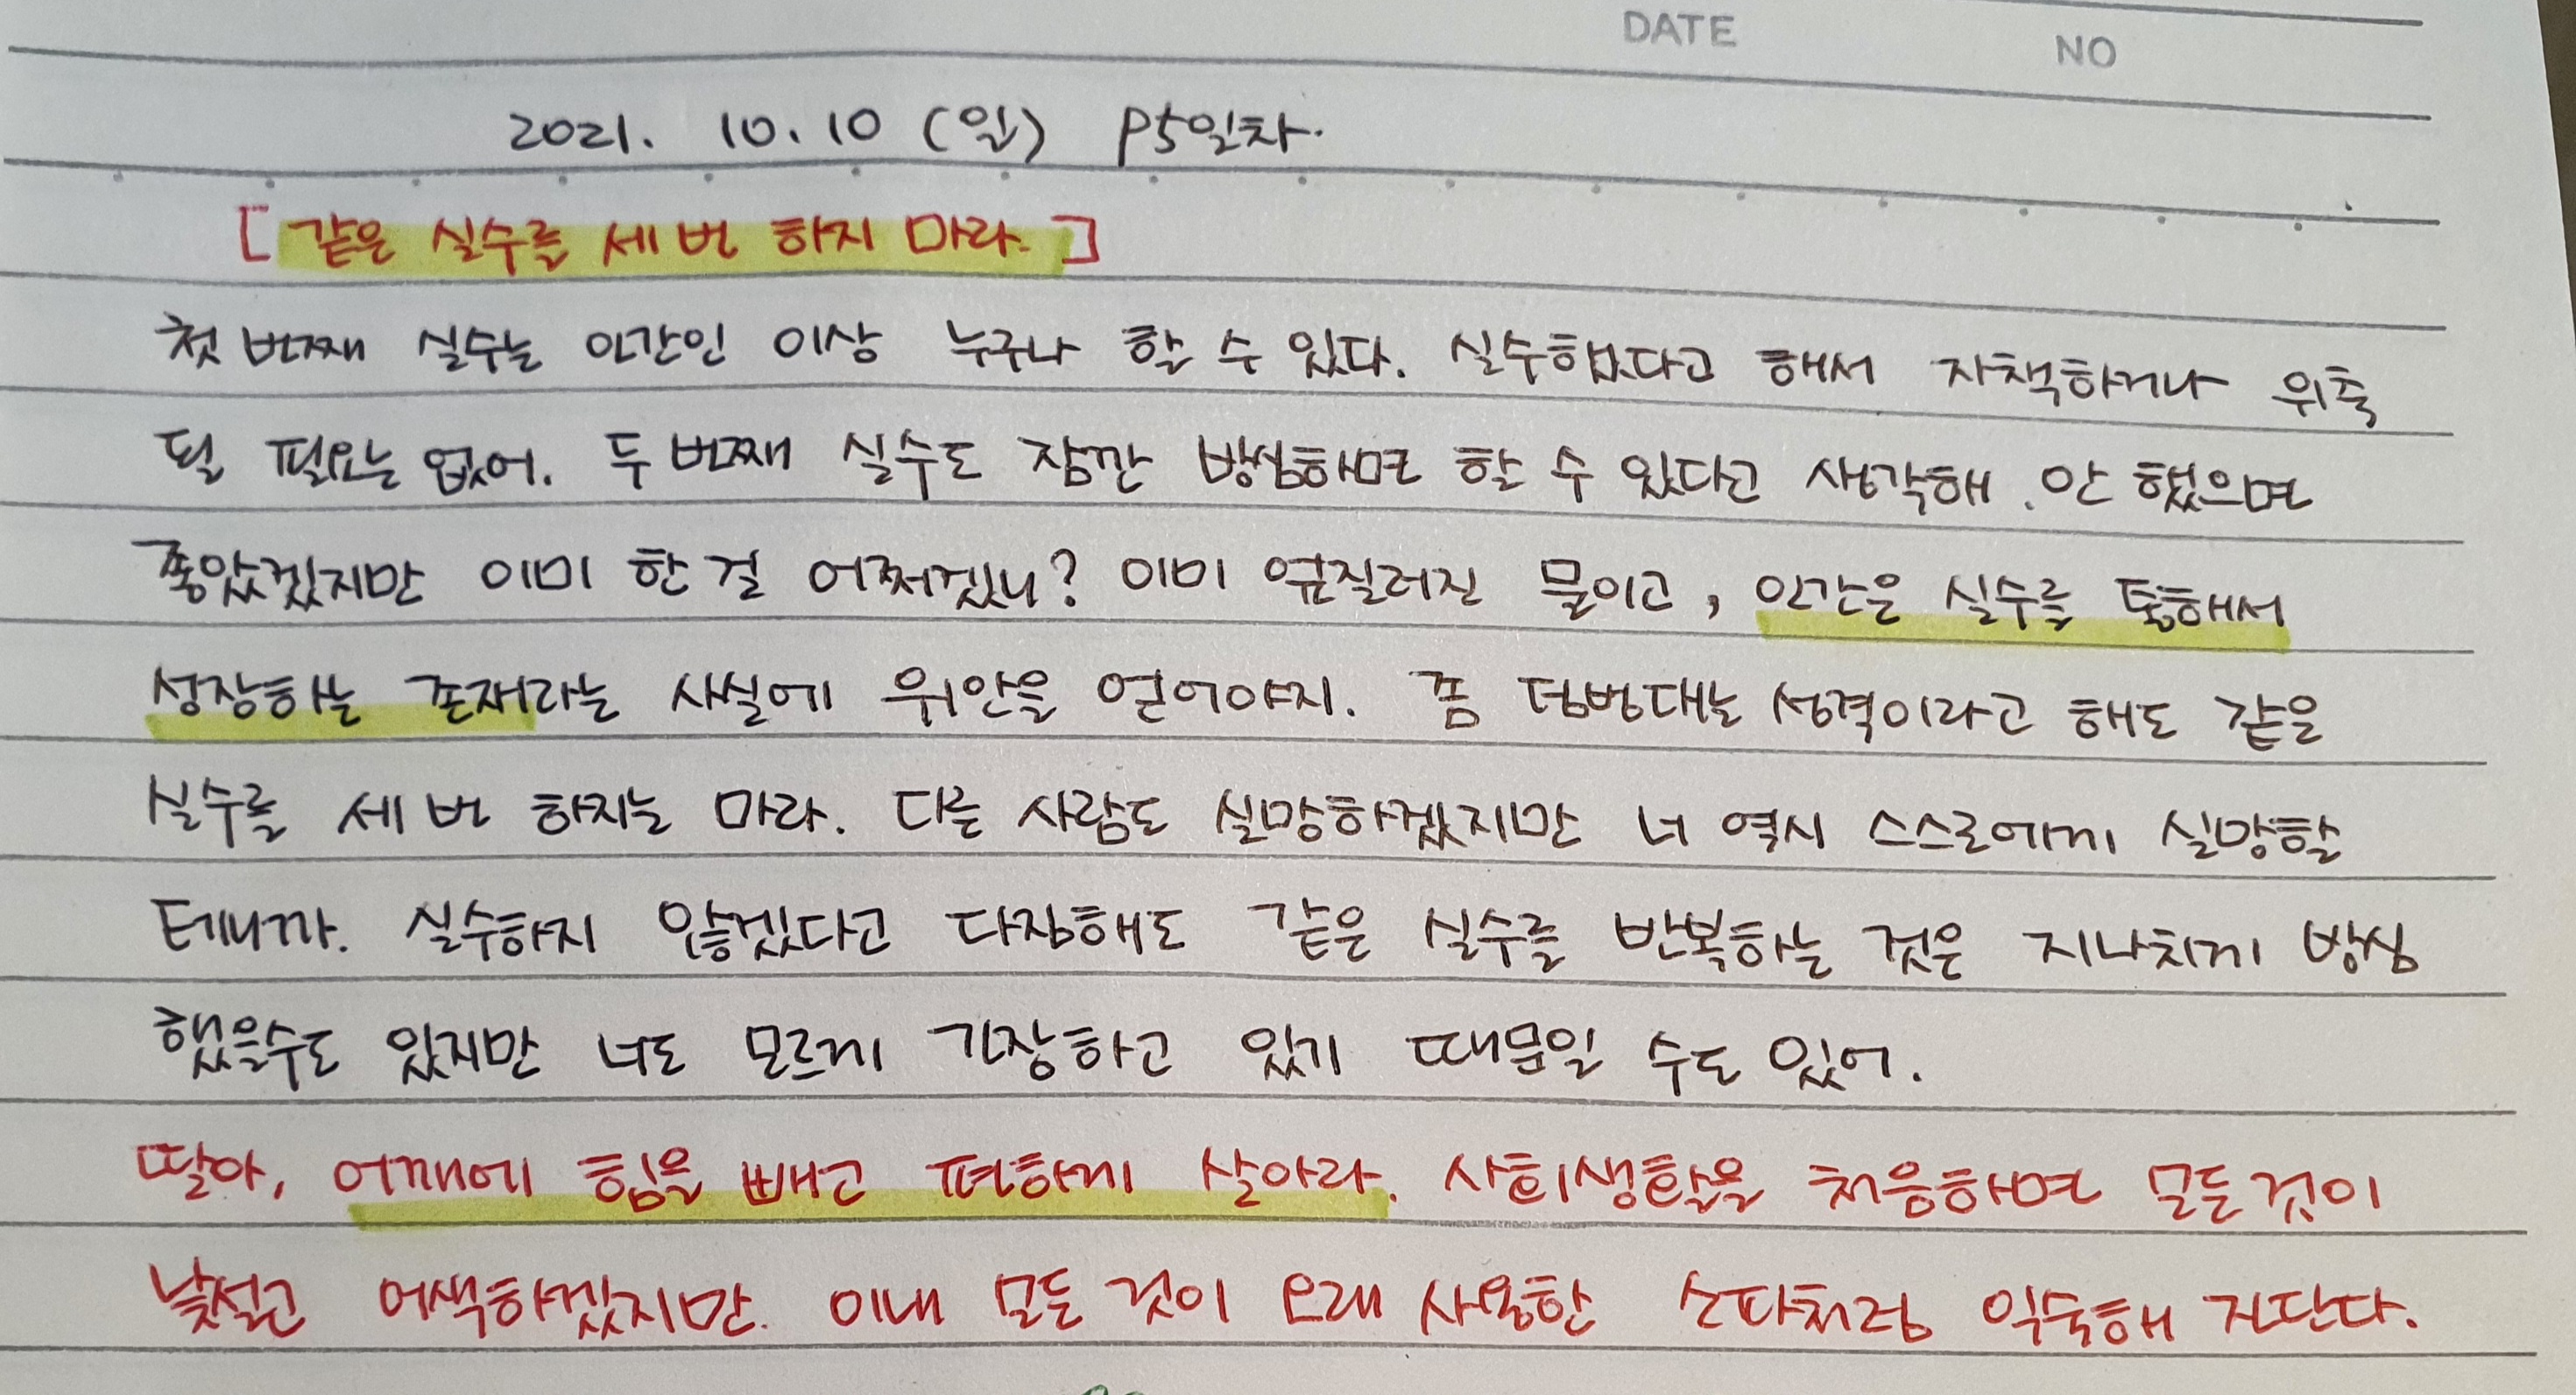 DATE
NO
2021. 10. 10 (일) P5일차.
[ 같은 실수를 세 번 하지 마라. ]
첫 번째 실수는 인간인 이상 누구나 할 수 있다. 실수했다고 해서 자책하거나 위축
될 필요는 없어. 두 번째 실수도 잠깐 방심하면 할 수 있다고 생각해. 안 했으면
좋았겠지만 이미 한 걸 어쩌겠니? 이미 엎질러진 물이고, 인간은 실수를 통해서
성장하는 존재라는 사실에 위안을 얻어야지. 좀 덤벙대는 성격이라고 해도 같은
실수를 세 번 하지는 마라. 다른 사람도 실망하겠지만 너 역시 스스로에게 실망할
테니까. 실수하지 않겠다고 다짐해도 같은 실수를 반복하는 것은 지나치게 방심
했을수도 있지만 너도 모르게 긴장하고 있기 때문일 수도 있어.
딸아, 어깨에 힘을 빼고 편하게 살아라. 사회생활을 처음하며 모든 것이
낯설고 어색하겠지만. 이내 모든 것이 오래 사용한 소파처럼 익숙해 진단다.